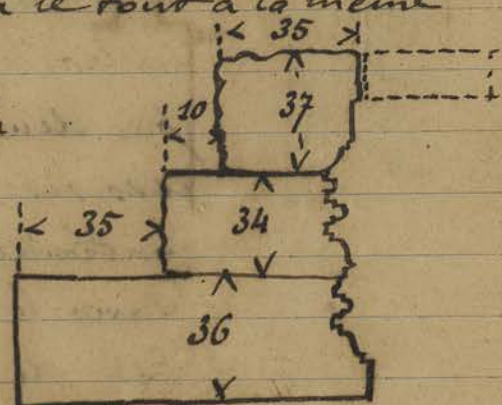 le tout à la même
35
10
37
35
34
36